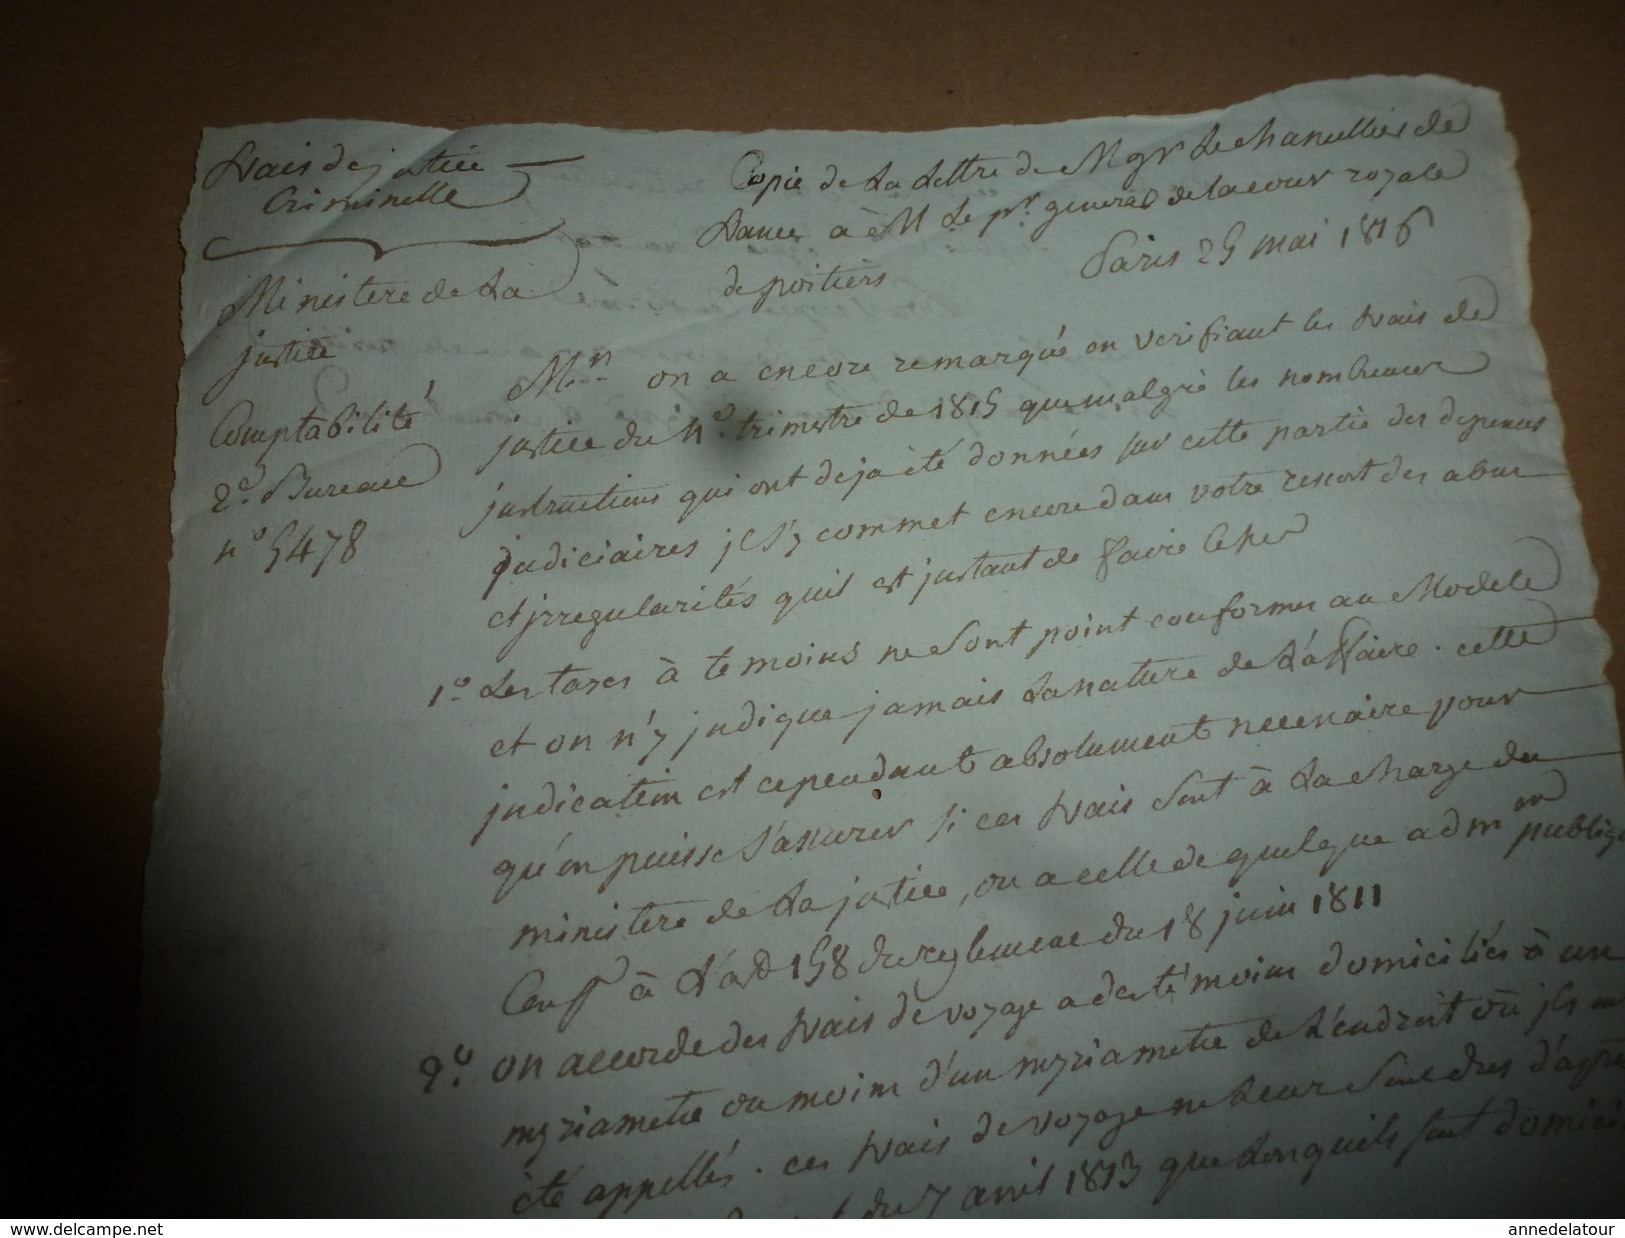 frais de justice
Criminelle
Ministere de La
justice
Comptabilité
2e. Bureau
no 5478
Copie de La Lettre de Mgr Le chancellier de
france à M Le pr. general de la cour royale
de poitiers Paris 25 mai 1816
Mr. on a encore remarqué en verifiant les frais de
justice du 4e. trimestre de 1815 que malgré les nombreuses
instructions qui ont deja été données sur cette partie des depenses
judiciaires il s'y commet encore dans votre ressort des abus
et irregularités qu'il est instant de faire cesser
1o. Les taxes à temoins ne sont point conformes au Modele
et on n'y indique jamais La nature de L'affaire. cette
indication est cependant absolument necessaire pour
qu'on puisse s'assurer si ces frais sont à La charge du
ministere de La justice, ou a celle de quelque admon publique
Conff à L'art 158 du reglement du 18 juin 1811
2o. on accorde des frais de voyage a des témoins domiciliés à un
myriametre ou moins d'un myriametre de L'endroit où ils ont
été appellés. ces frais de voyage ne Leur sont dus d'après
du 7 avril 1813 que Lorsquils sont domiciliés
https://www.delcampe.net
annedelatour